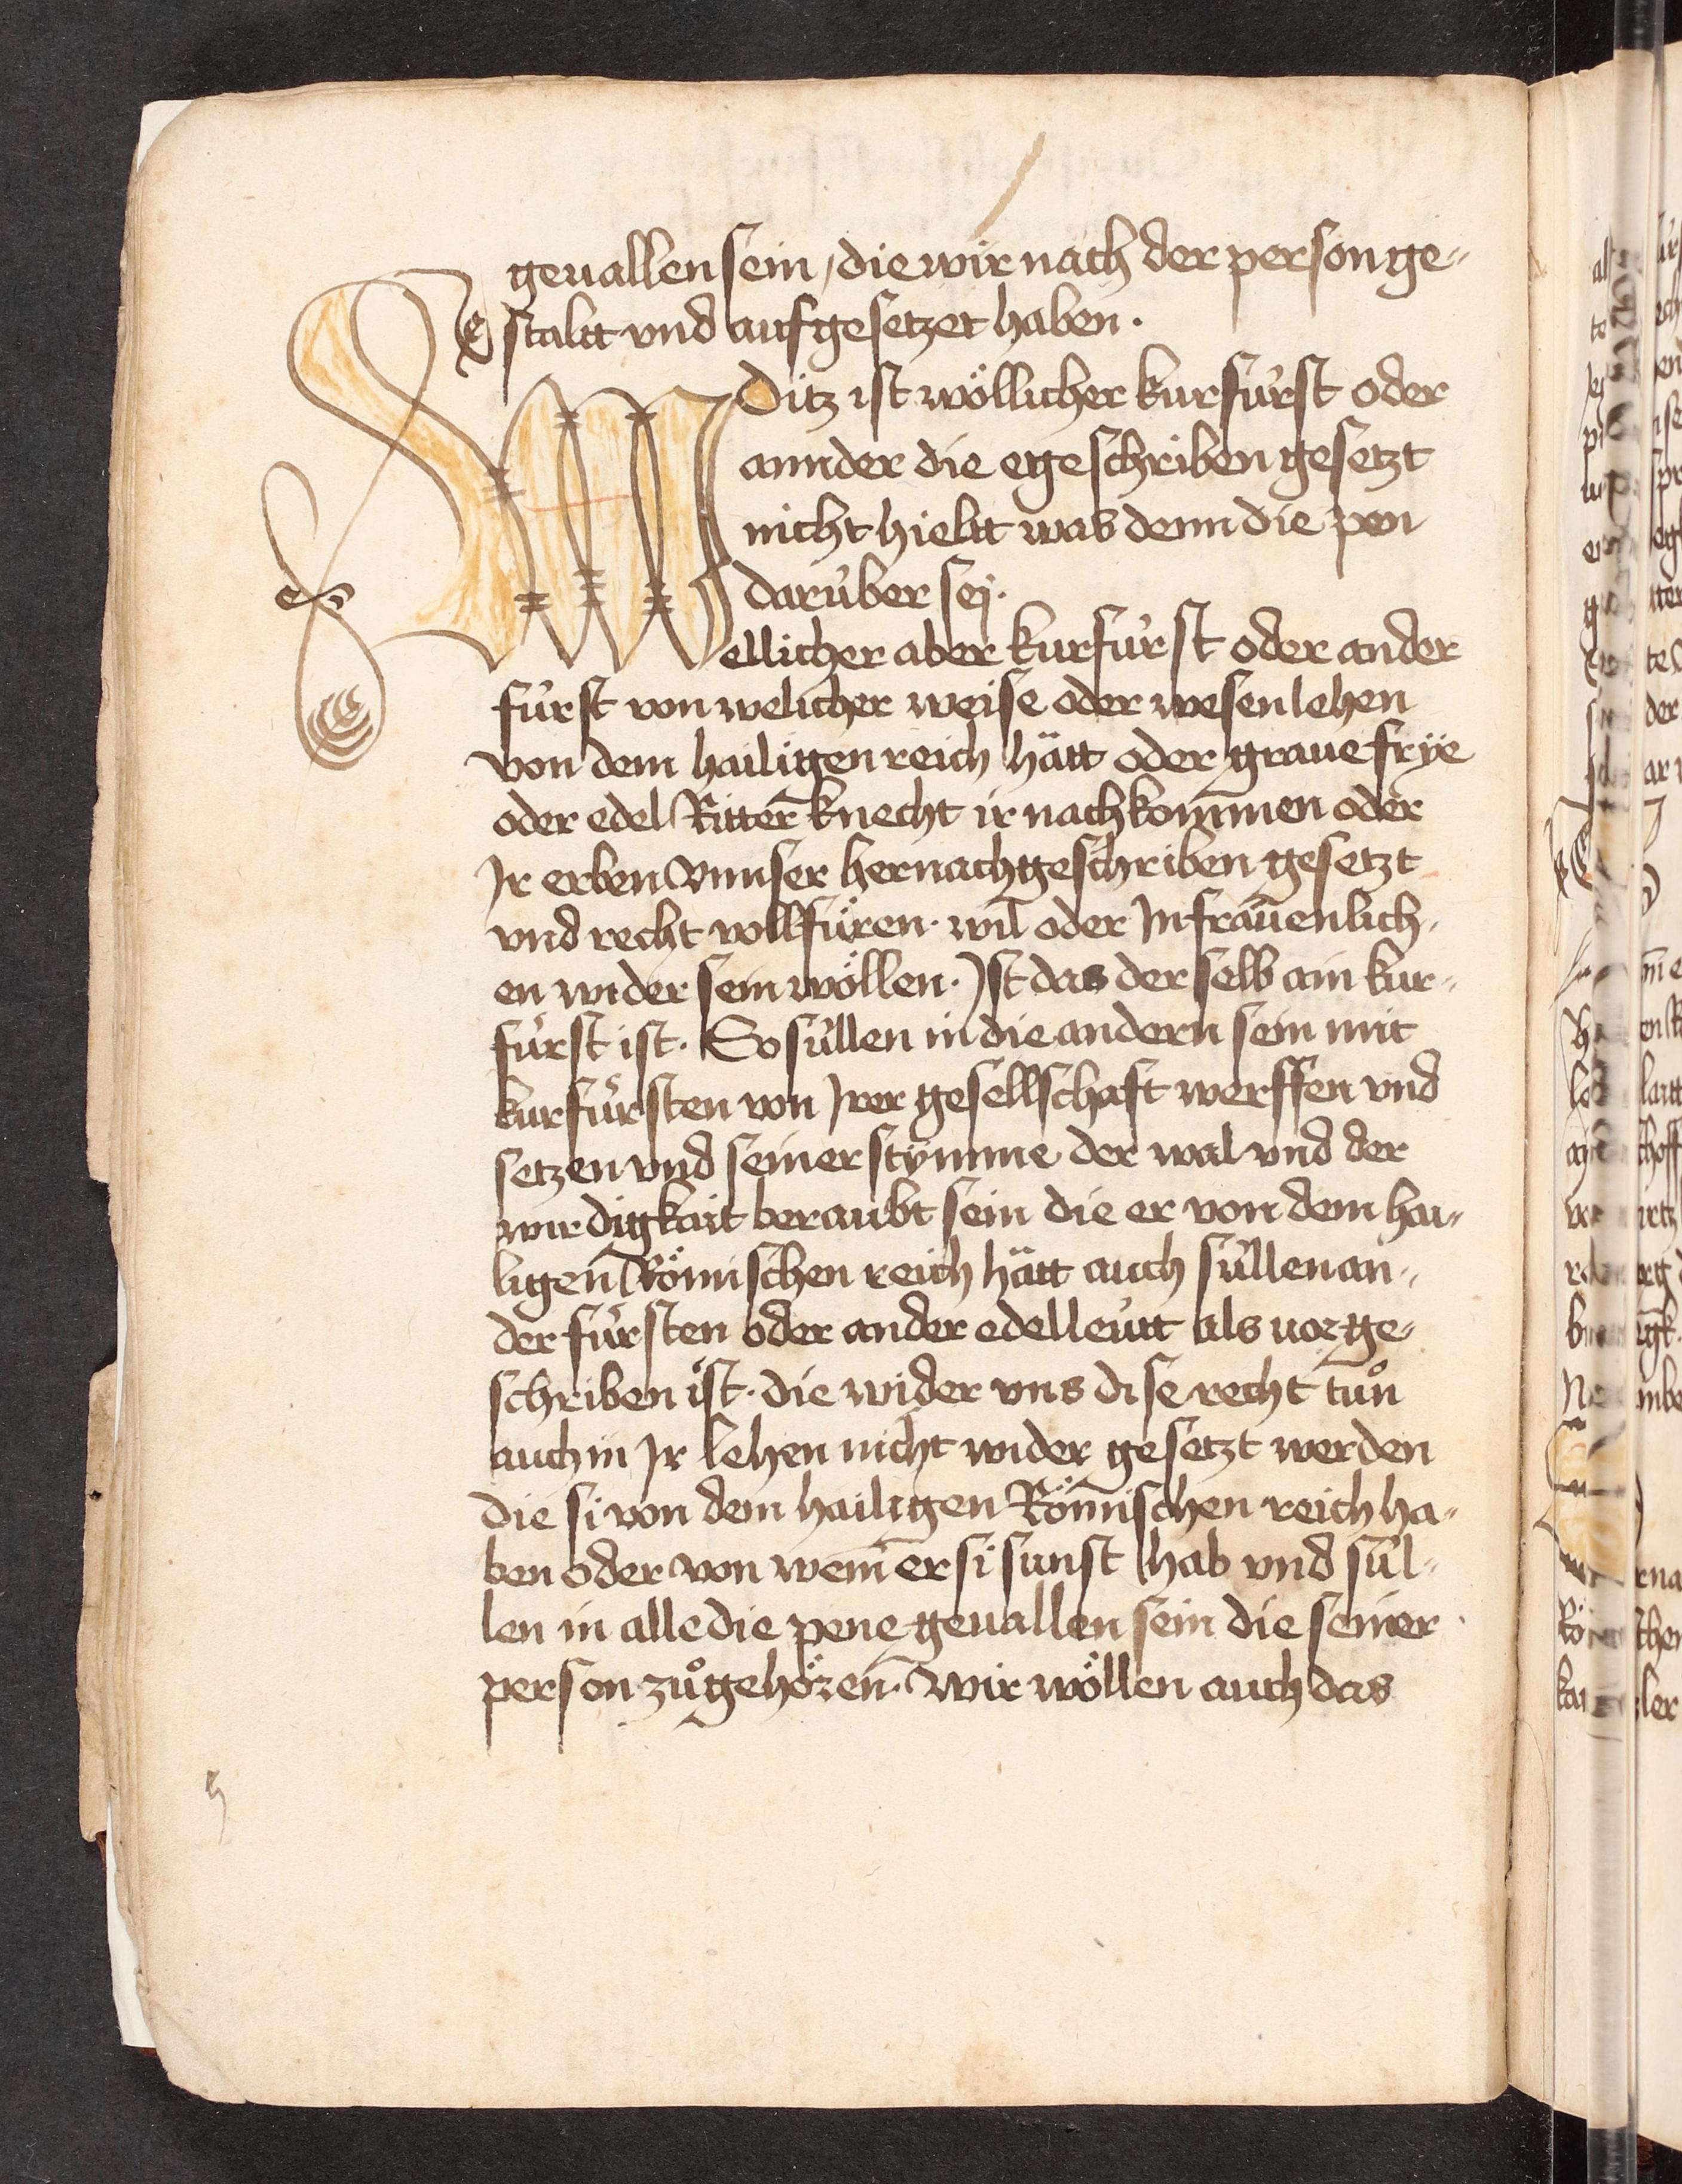 geuallen sein / die wir nach der person ge-
staltt vnd aufgesetzet haben .
Ditz ist wöllicher kurfürst oder
annder die egeschriben gesetzt
nicht hieltt was denn die pen
darüber sey .
Wellicher aber kurfürst oder ander
fürst von welicher weise oder wesen lehen
von dem hailigen reich hätt oder graue frÿe
oder edel Ritter knecht ir nachkommen oder
Ir erben Vnnser hernachgeschriben gesetzt
vnd recht vollfüren . wil oder In frauenlich-
en wider sein wöllen . Ist das der selb ain kur-
fürst ist . So süllen in die andern sein mit
kurfürsten von Irer gesellschaft werffen vnd
setzen vnd seiner stÿmme der wal vnd der
wirdigkait beraubt sein die er von dem hai-
ligen Römischen reich hätt auch süllen an-
der fürsten oder ander edelleütt als vorge-
schriben ist . die wider vns dise recht tůn
auch in Ir lehen nicht wider gesetzt werden
die si von dem hailigen Römischen reich ha-
ben oder von wem er si sunst hab vnd sül-
len in alle die pene geuallen sein die seiner
person zůgehören . Wir wöllen auch das